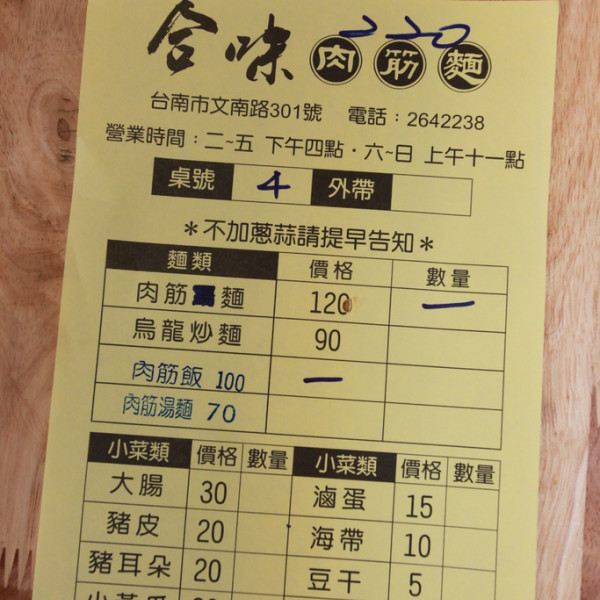 合味 肉筋麵
220
台南市文南路301號 電話：2642238
營業時間：二~五 下午四點·六~日 上午十一點
桌號 4 外帶
＊不加蔥蒜請提早告知＊
麵類 價格 數量
肉筋麵 120 一
烏龍炒麵 90
肉筋飯 100 一
肉筋湯麵 70
小菜類 價格 數量 小菜類 價格 數量
大腸 30 滷蛋 15
豬皮 20 海帶 10
豬耳朵 20 豆干 5